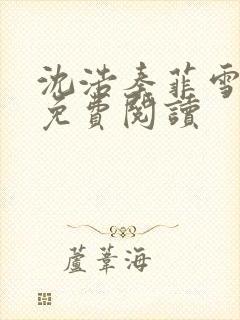 沈浩秦菲雪
免費閱讀
蘆葦海